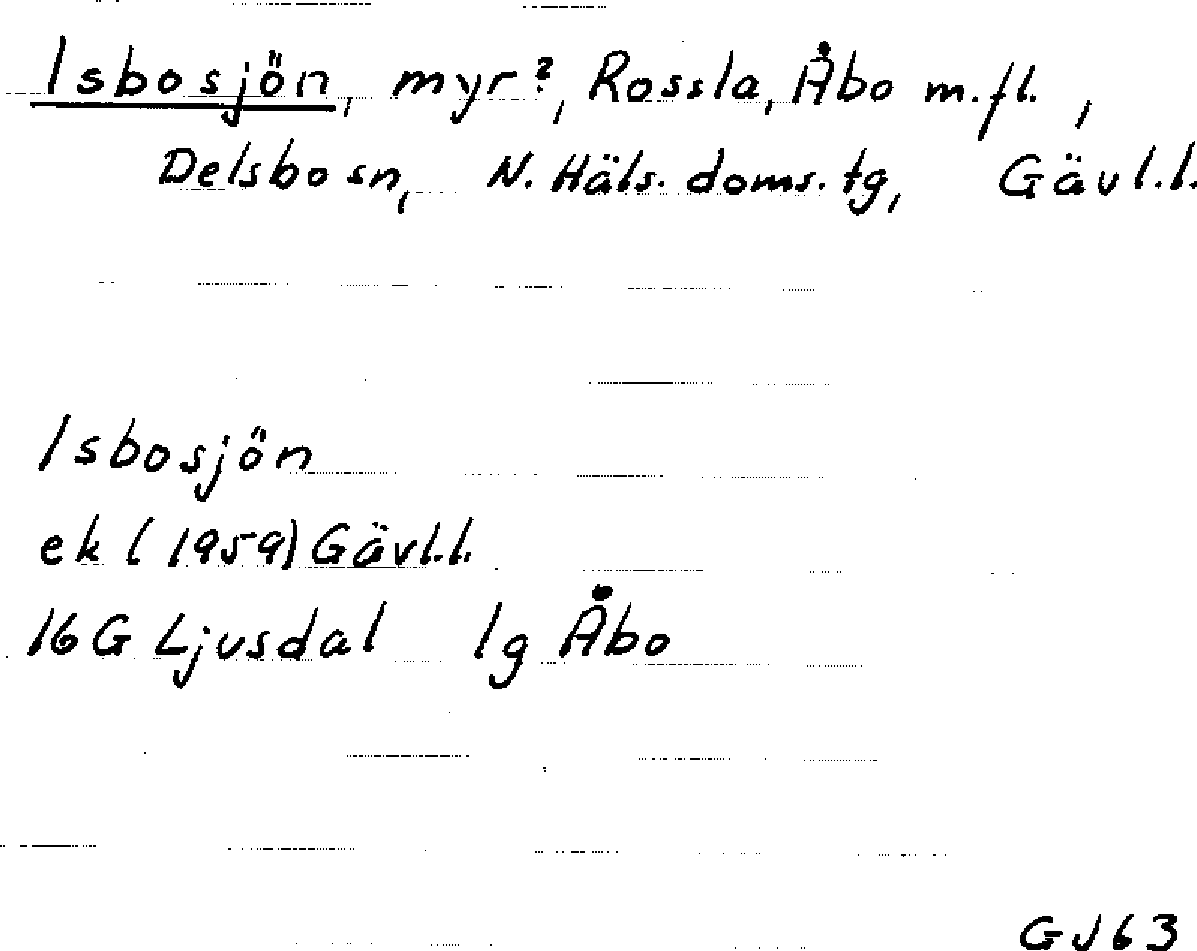 Isbosjön, myr?, Rossla, Åbo m.fl.,
Delsbo sn, N. Häls. doms. tg, Gävl.l.
Isbosjön
ek (1959) Gävl.l.
16G Ljusdal 1g Åbo
GJ63